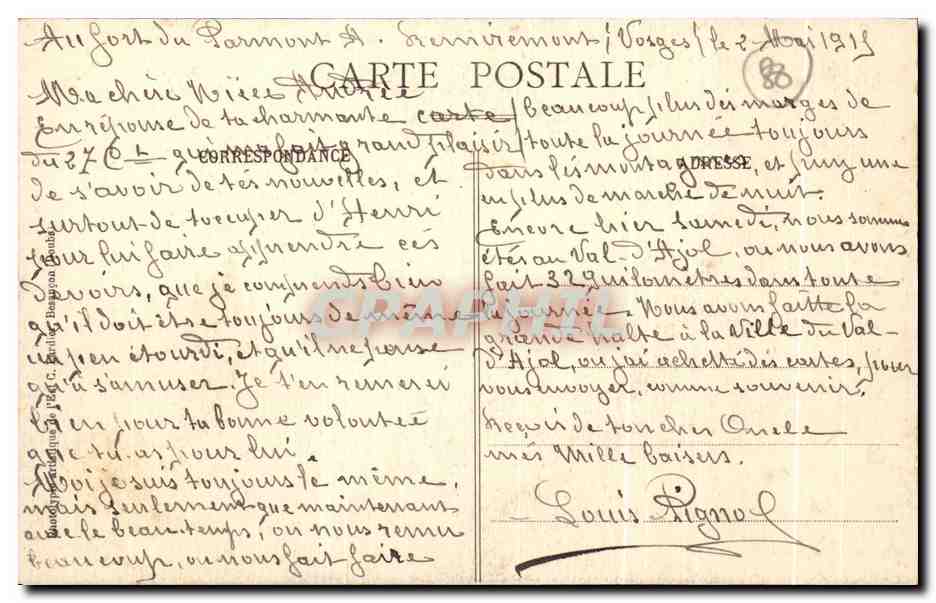 Au fort du Parmont A. Remiremont (Vosges) le 2 Mai 1915
88
CARTE POSTALE
CORRESPONDANCE
ADRESSE
Ma chère Nièce Andrée
En réponse de ta charmante carte
du 27 Ct qui me fait grand plaisir
de s'avoir de tés nouvelles, et
surtout de t'occuper d'Henri
pour lui faire apprendre cés
dévoirs, que je comprends bien
qu'il doit être toujours de même
un peu étourdi, et qu'il ne pense
qu'à s'amuser. Je t'en remerci
bien pour ta bonne volontée
que tu as pour lui.
Moi je suis toujours le même,
mais seulement que maintenant
avec le beau temps, on nous remu
beaucoup, on nous fait faire
beaucoup plus dés marges de
toute la journée toujours
dans lés montagnes, et puis une
en plus de marche de nuit.
Encore hier samedi, nous sommes
étés au Val-d'Ajol, ou nous avons
fait 32 Quilomètres dans toute
la journée. Nous avons faitte la
grande halte à la Ville du Val-
d'Ajol, ou j'ai achetté dés cartes, pour
vous envoyer, comme souvenirs,
Reçois de ton cher Oncle
més Mille baisers.
Louis Rignol
Phototypie artistique de l'Edt C. Lardier, Besançon (Doubs)
CPAPHIL